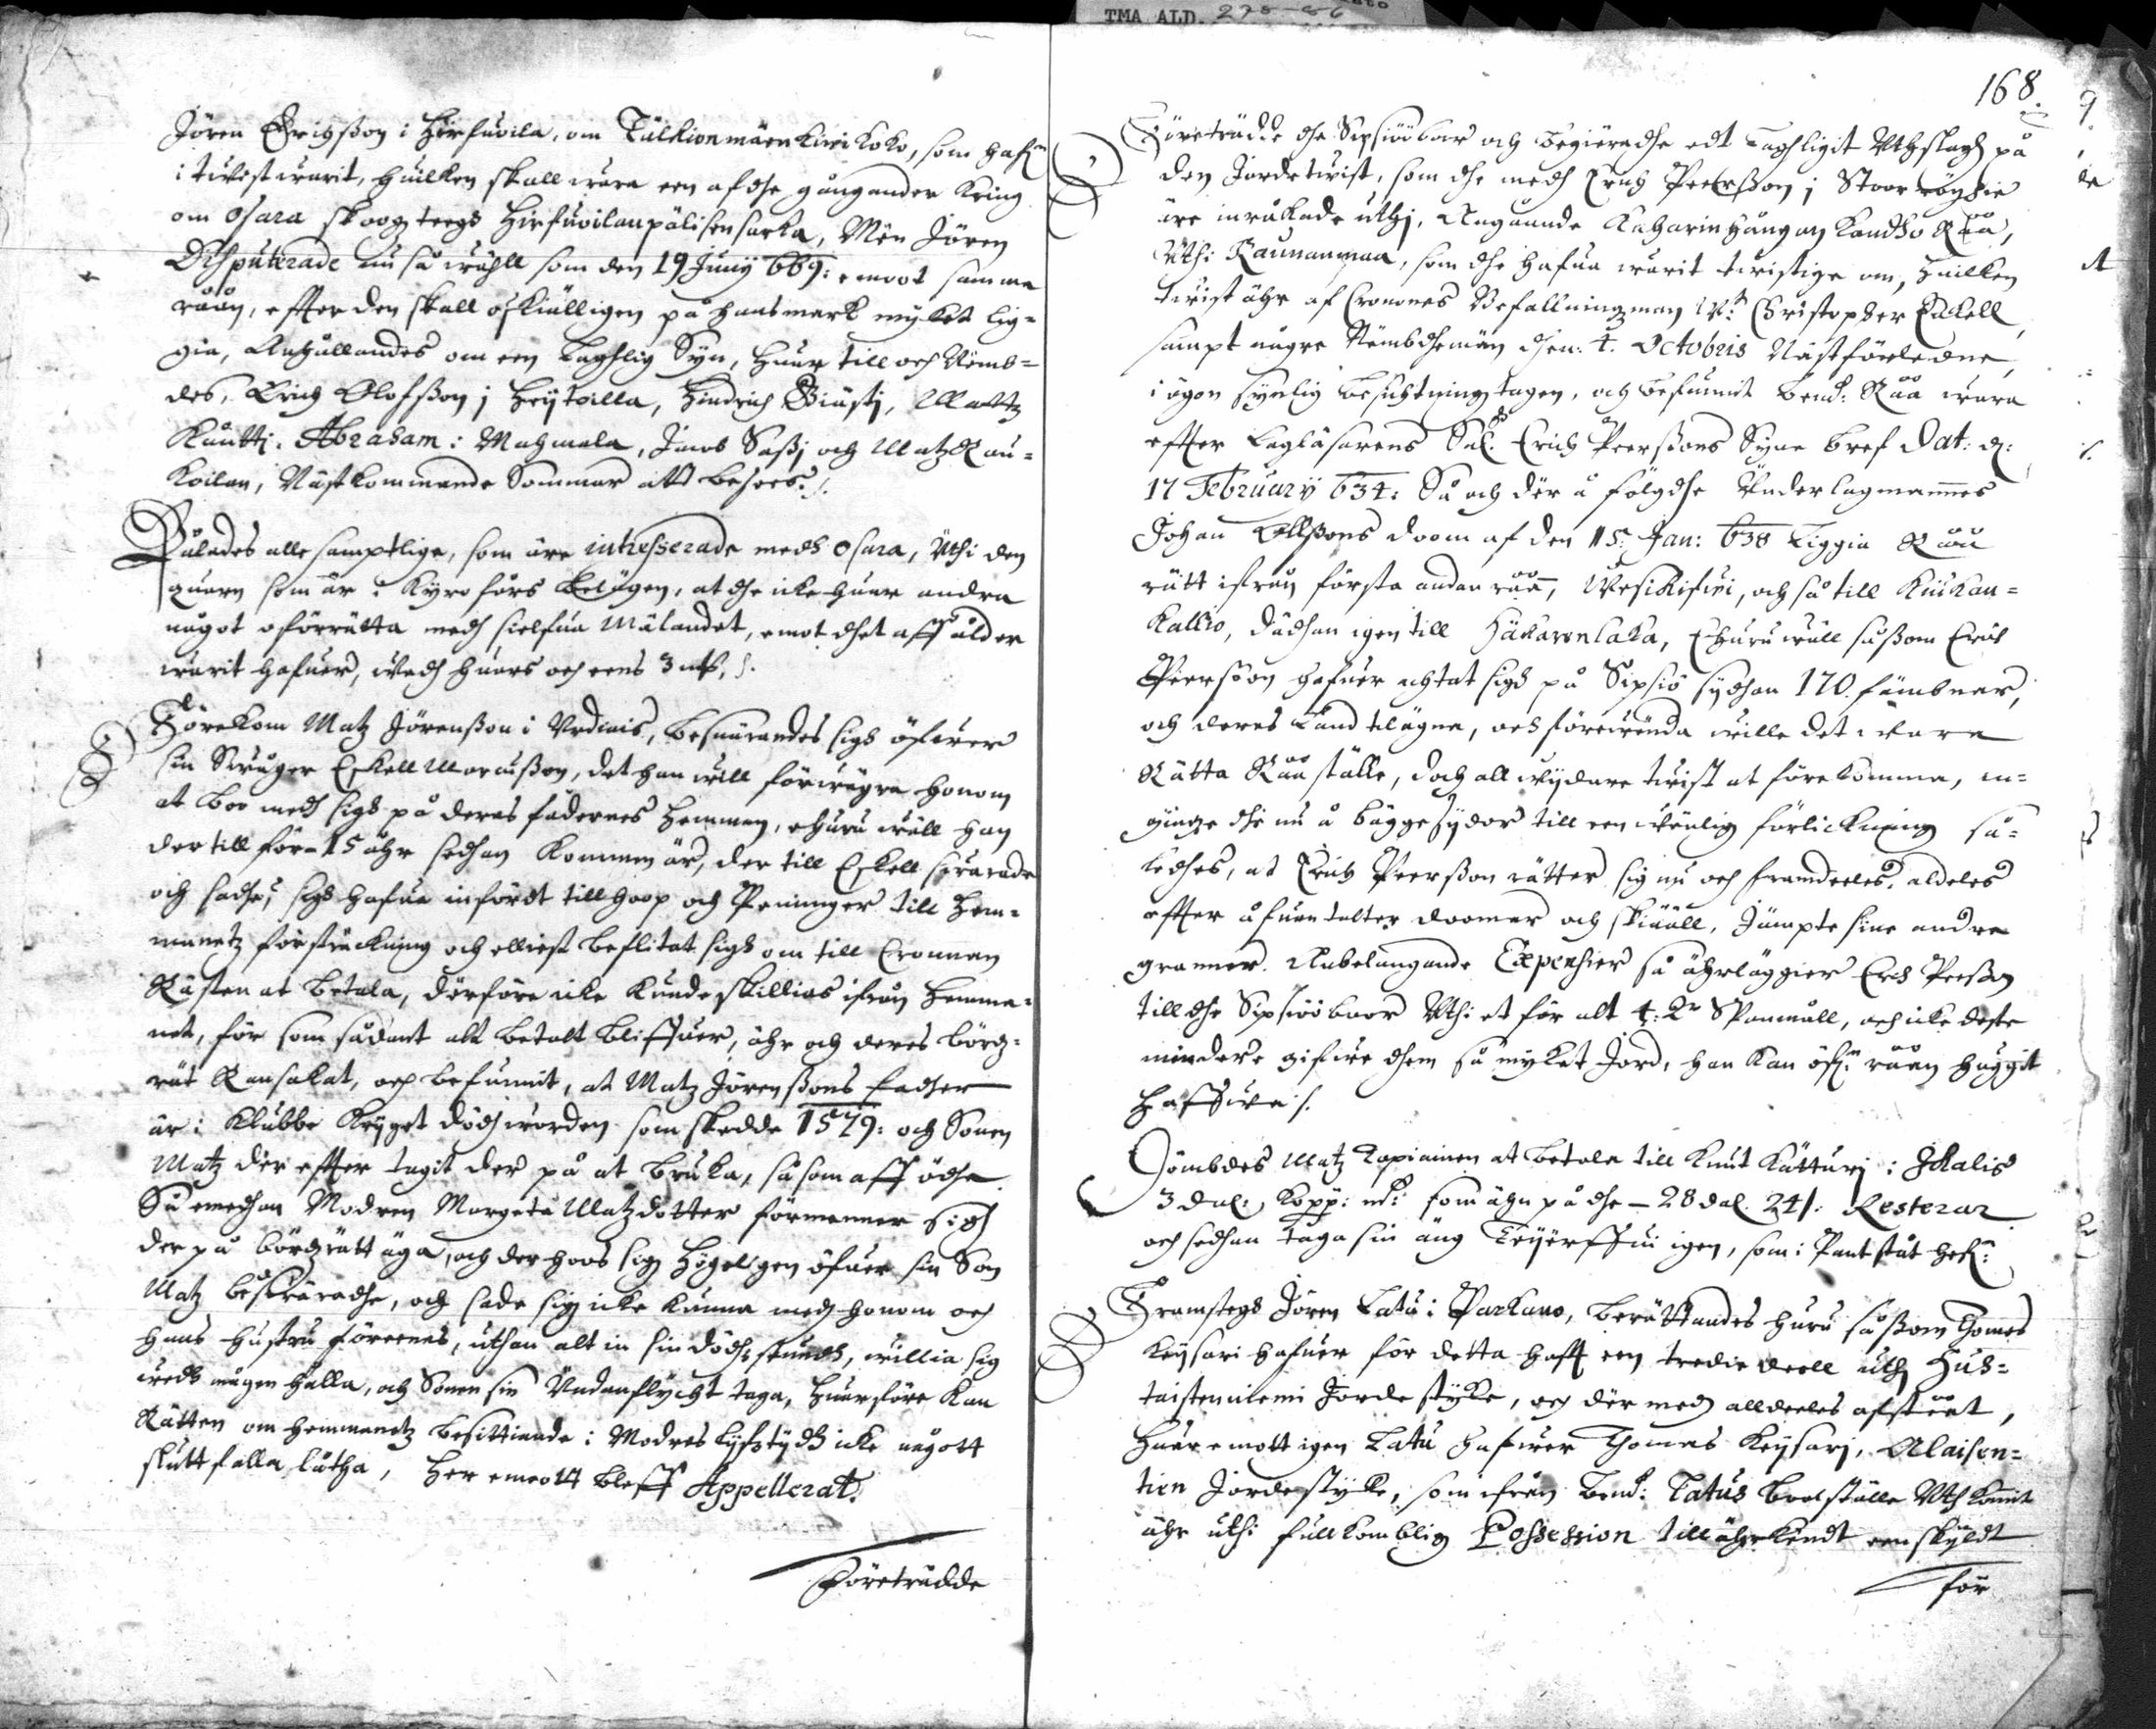 TMA ALD. 278-86
Jören Erichßon i Hirfuvila, om Tälkionmäen Kiwi Koko, som hafr
i tvist warit, huilken skall wara een af dhe gångander Kring
om osara skoogz teegs Hirfuvilanpälisensarka, Men Jören
Disputerade nu så wähll som den 19 Juny 669: emoot samma
råån, effter den skall oskiälligen på hans mark mykit lig=
gia, Anhållandes om een Laghlig Syn, huar till och Nemb=
des, Erich Olofßon j Heytoilla, Hindrich Biusti, Mattz
Kautti, Abraham: Matzmala, Jacob Saßi och Matz Kau=
koilan, Nästkommande Sommar att besees./.
Pålades alle samptlige, som äre intresserade medh osara, Uthi den
quarn som är i Kyro fors Belägen, at dhe icke huar andra
något oförrätta medh sielfua Målandet, emot dhet aff ålder
warit hafuer, Wedh huars och eens 3 mk./.
Förekom Matz Jörenßon i Wrdiais, besuärandes sigh öfwer
sin Swåger Eskell Marcußon, det han will förwägra honom
at boo medh sigh på deras fädernes Hemman, ehuru wäll han
der till för 15 åhr sedhan Kommen är, der till Eskell swarade
och sadhe, sigh hafua infördt till hoop och Peninger till Hem=
manetz förstäckning och elliest beflitat sigh om till Cronnan
Rästen at betala, därföre icke kunde skillias ifrån Hemma=
net, för som sådant alt betalt bliffuer, ähr och deres börg=
rät Ransakat, och befunnit, at Matz Jörenßons Fadher
är i Klubbe Kryget dödh worden som skedde 1579: och Sonen
Matz der effter tagit der på at bruka, såsom aff ödhe.
Så emedhan Modren Margeta Matzdotter förmenner sigh
der på börgrätt äga, och der hoos sig högeligen öfuer sin Son
Matz beswäradhe, och sade sig icke kunna medh honom och
hans hustru föreenas, uthan alt in sin dödhstundh, willia sig
wedh mågen hålla, och Sonen sin Undanflycht taga, huarföre kan
Rätten om hemmanetz besittiande i Modres lyfztydh icke någott
slutt falla låtha, Her emoott bleff Appellerat.
Företrädde
168.
Företrädde dhe Sipsiöö boar och begieradhe ett Laghligit Uthslagh på
den Jordetwist, som dhe medh Erich Peerßon j Stoor röyhie
äre inråkade uthj, Angåande Katharinhången Kandho Råå,
Uthi Raunanmaa, som dhe hafua warit twistige om, huilken
twist ähr af Cronones Befallningzman Wt Christopher Eckell,
sampt någre Nembdhemän dhen: 4. Octobris Nästförledne,
i ögon synlig besichtning tagen, och befunnit bemt: Råå wara
effter Lagläsarens Sal. Erich Peerßons Syne bref Dat: d:
17 February 634: Så och där å fölgdhe Underlagmannes
Johan Olßons doom af den 15. Jan: 638 Liggia Råå
rätt ifrån första ändan råå, Wesikifiwi, och så till Kiukan=
Kallio, dädhan igen till Häkärönlaka, Ehuru wäll såßom Erich
Peersson hafuer achtat sigh på Sipsiö sydhan 170 fämbnar,
och deres Land tilägna, och förewända wille det wara
Rätta Rååställe, doch all wydare twist at förekomma, in=
ginge dhe nu å bägge sydor till een wänlig förlickning så=
ledhes, at Erich Peerßon rätter sig nu och framdeeles, aldeles
effter åfuantalter doomar och skiääll, Jämpte sine andra
granner. Anbelangande Expensier så åhrläggier Erich Peerßon
till dhe Sipsiöö boar Uthi et för alt 4: Dr Spanmåll, och icke deste
mindere gifwe dhem så mykit Jord, han kan öfr råån huggit
haffwa./.
Dömbdes Matz Tapiainen at betala till Knut Kätturj i Ikalis
3 dal. Kopp: mt: som ähn på dhe - 28 dal. 24/: Resterar
och sedhan taga sin äng Teyerffui igen, som i Pant ståt hafr:
Framstegh Jören Latu i Parkano, berättandes huru såßom Thomas
Keysari hafuer för detta haft een tredie deell uthj Hus=
taistenniemi Jorde stycke, och der medh alldeeles afståat,
Huaremott igen Latu hafuer Thomas Keysarj, Alaisen=
tien Jordestycke, som ifrån bemt: Latus bordställe Uth komit
ähr uthi fullkomblig Possession till åhrkändt eenskyldt
för